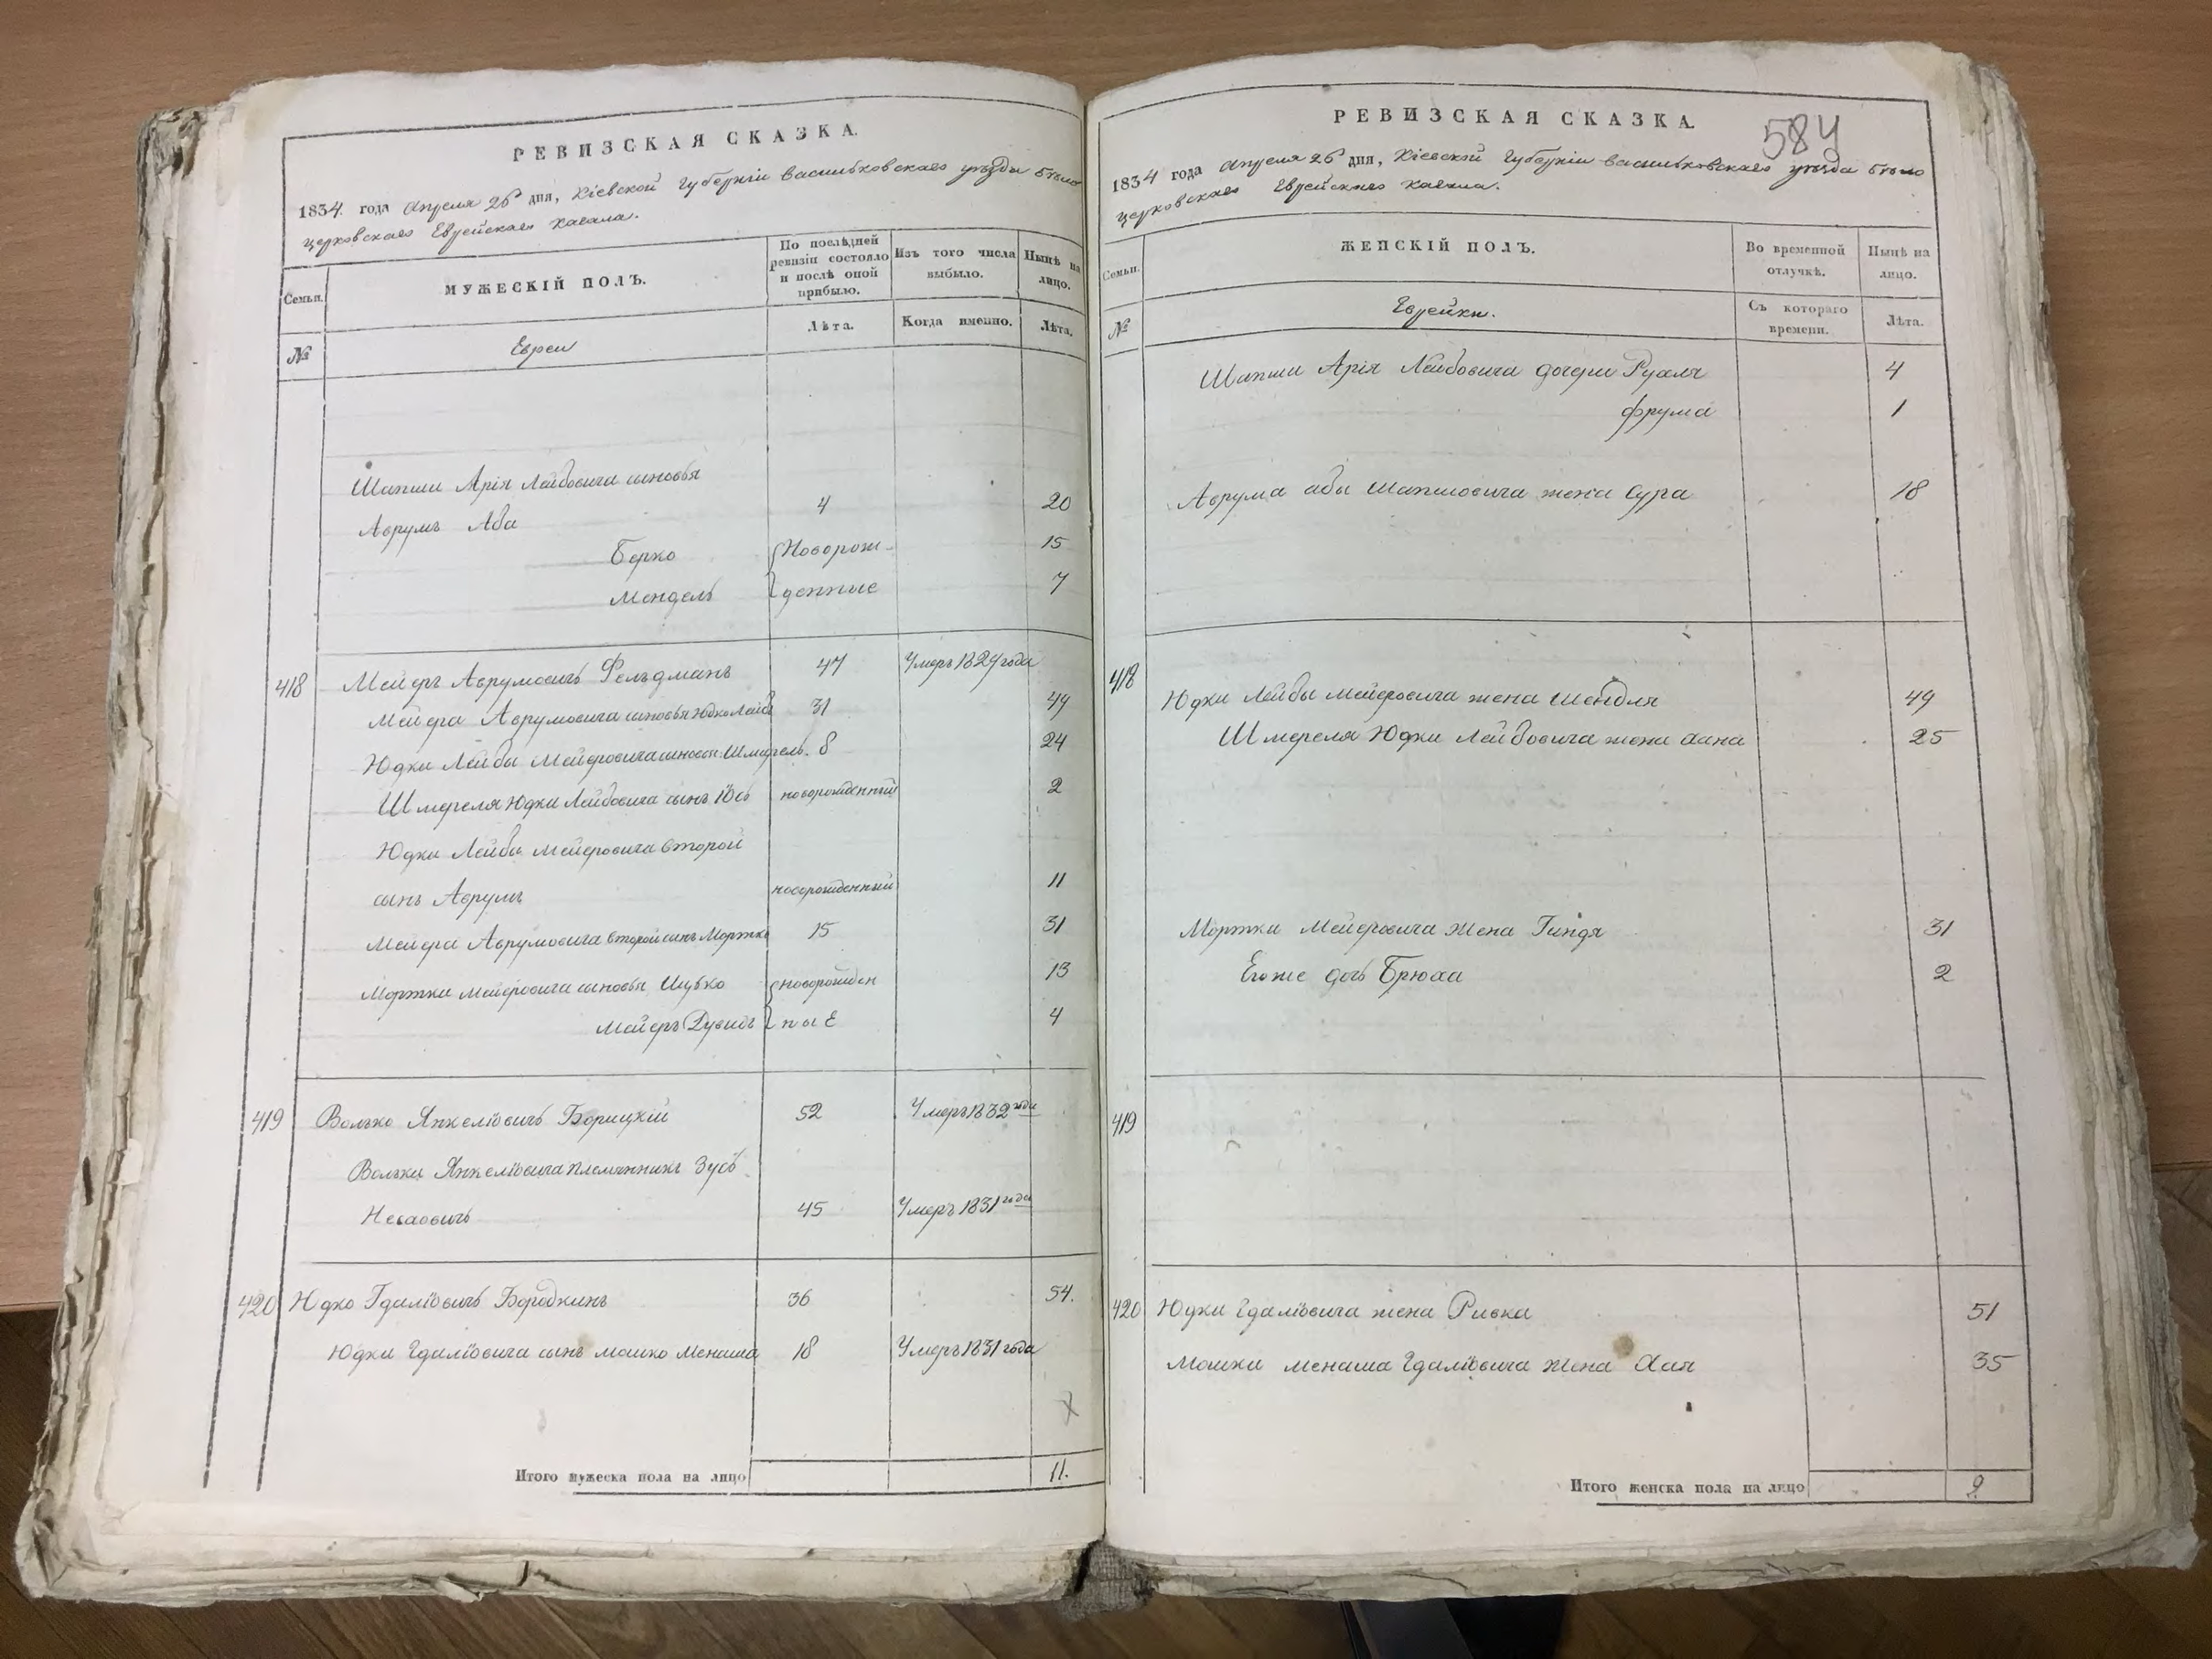 РЕВИЗСКАЯ СКАЗКА.
1834 года Апреля 26 дня, Кіевской Губерніи васильковскаго уѣзда бѣло
церковскаго Еврейскаго Кагала.
Семьи.
МУЖЕСКІЙ ПОЛЪ.
По послѣдней ревизіи состояло и послѣ оной прибыло.
Изъ того числа выбыло.
Нынѣ на лицо.
№
Евреи
Лѣта.
Когда именно.
Лѣта.
Шапши Арія Лейбовича сыновья
Аврумъ Аба 4 20
Берко {Новорож- 15
Мендель {денные 7
418 Мейеръ Аврумовичъ Фельдманъ 47 Умеръ 1829 года
Мейера Аврумовича сыновья Юдко Лейба 31 49
Юдки Лейбы Мейеровича сыновья Шмерель. 8 24
Шмереля Юдки Лейбовича сынъ Іось новорожденный 2
Юдки Лейбы Мейеровича второй
сынъ Аврумъ новорожденный 11
Мейера Аврумовича второй сынъ Мортко 15 31
Мортки Мейеровича сыновья Ицько {новорожден 13
Мейеръ Дувидъ {ные 4
419 Волько Янкеліовичъ Борицкій 52 Умеръ 1832 года
Вольки Янкеліовича племянникъ Зусь
45 Умеръ 1831 года
420 Юдко Гдаліовичъ Бородкинъ 36 54.
Юдки Гдаліовича сынъ Мошко Менаша 18 Умеръ 1831 года
Итого мужеска пола на лицо 11.
584
РЕВИЗСКАЯ СКАЗКА.
1834 года Апреля 26 дня, Кіевской Губерніи васильковскаго уѣзда бѣло
церковскаго Еврейскаго Кагала.
Семьи.
ЖЕНСКІЙ ПОЛЪ.
Во временной отлучкѣ.
Нынѣ на лицо.
№
Еврейки.
Съ котораго времени.
Лѣта.
Шапши Арія Лейбовича дочери Рухля 4
Фрума 1
Аврума абы Шапшовича жена Сура 18
418
Юдки Лейбы Мейеровича жена Шендля 49
Шмереля Юдки Лейбовича жена Хана 25
Мортки Мейеровича жена Гиндя 31
Егоже дочь Брюха 2
419
420 Юдки Гдаліовича жена Ривка 51
Мошки Менаша Гдаліовича жена Хая 35
Итого женска пола на лицо 9.